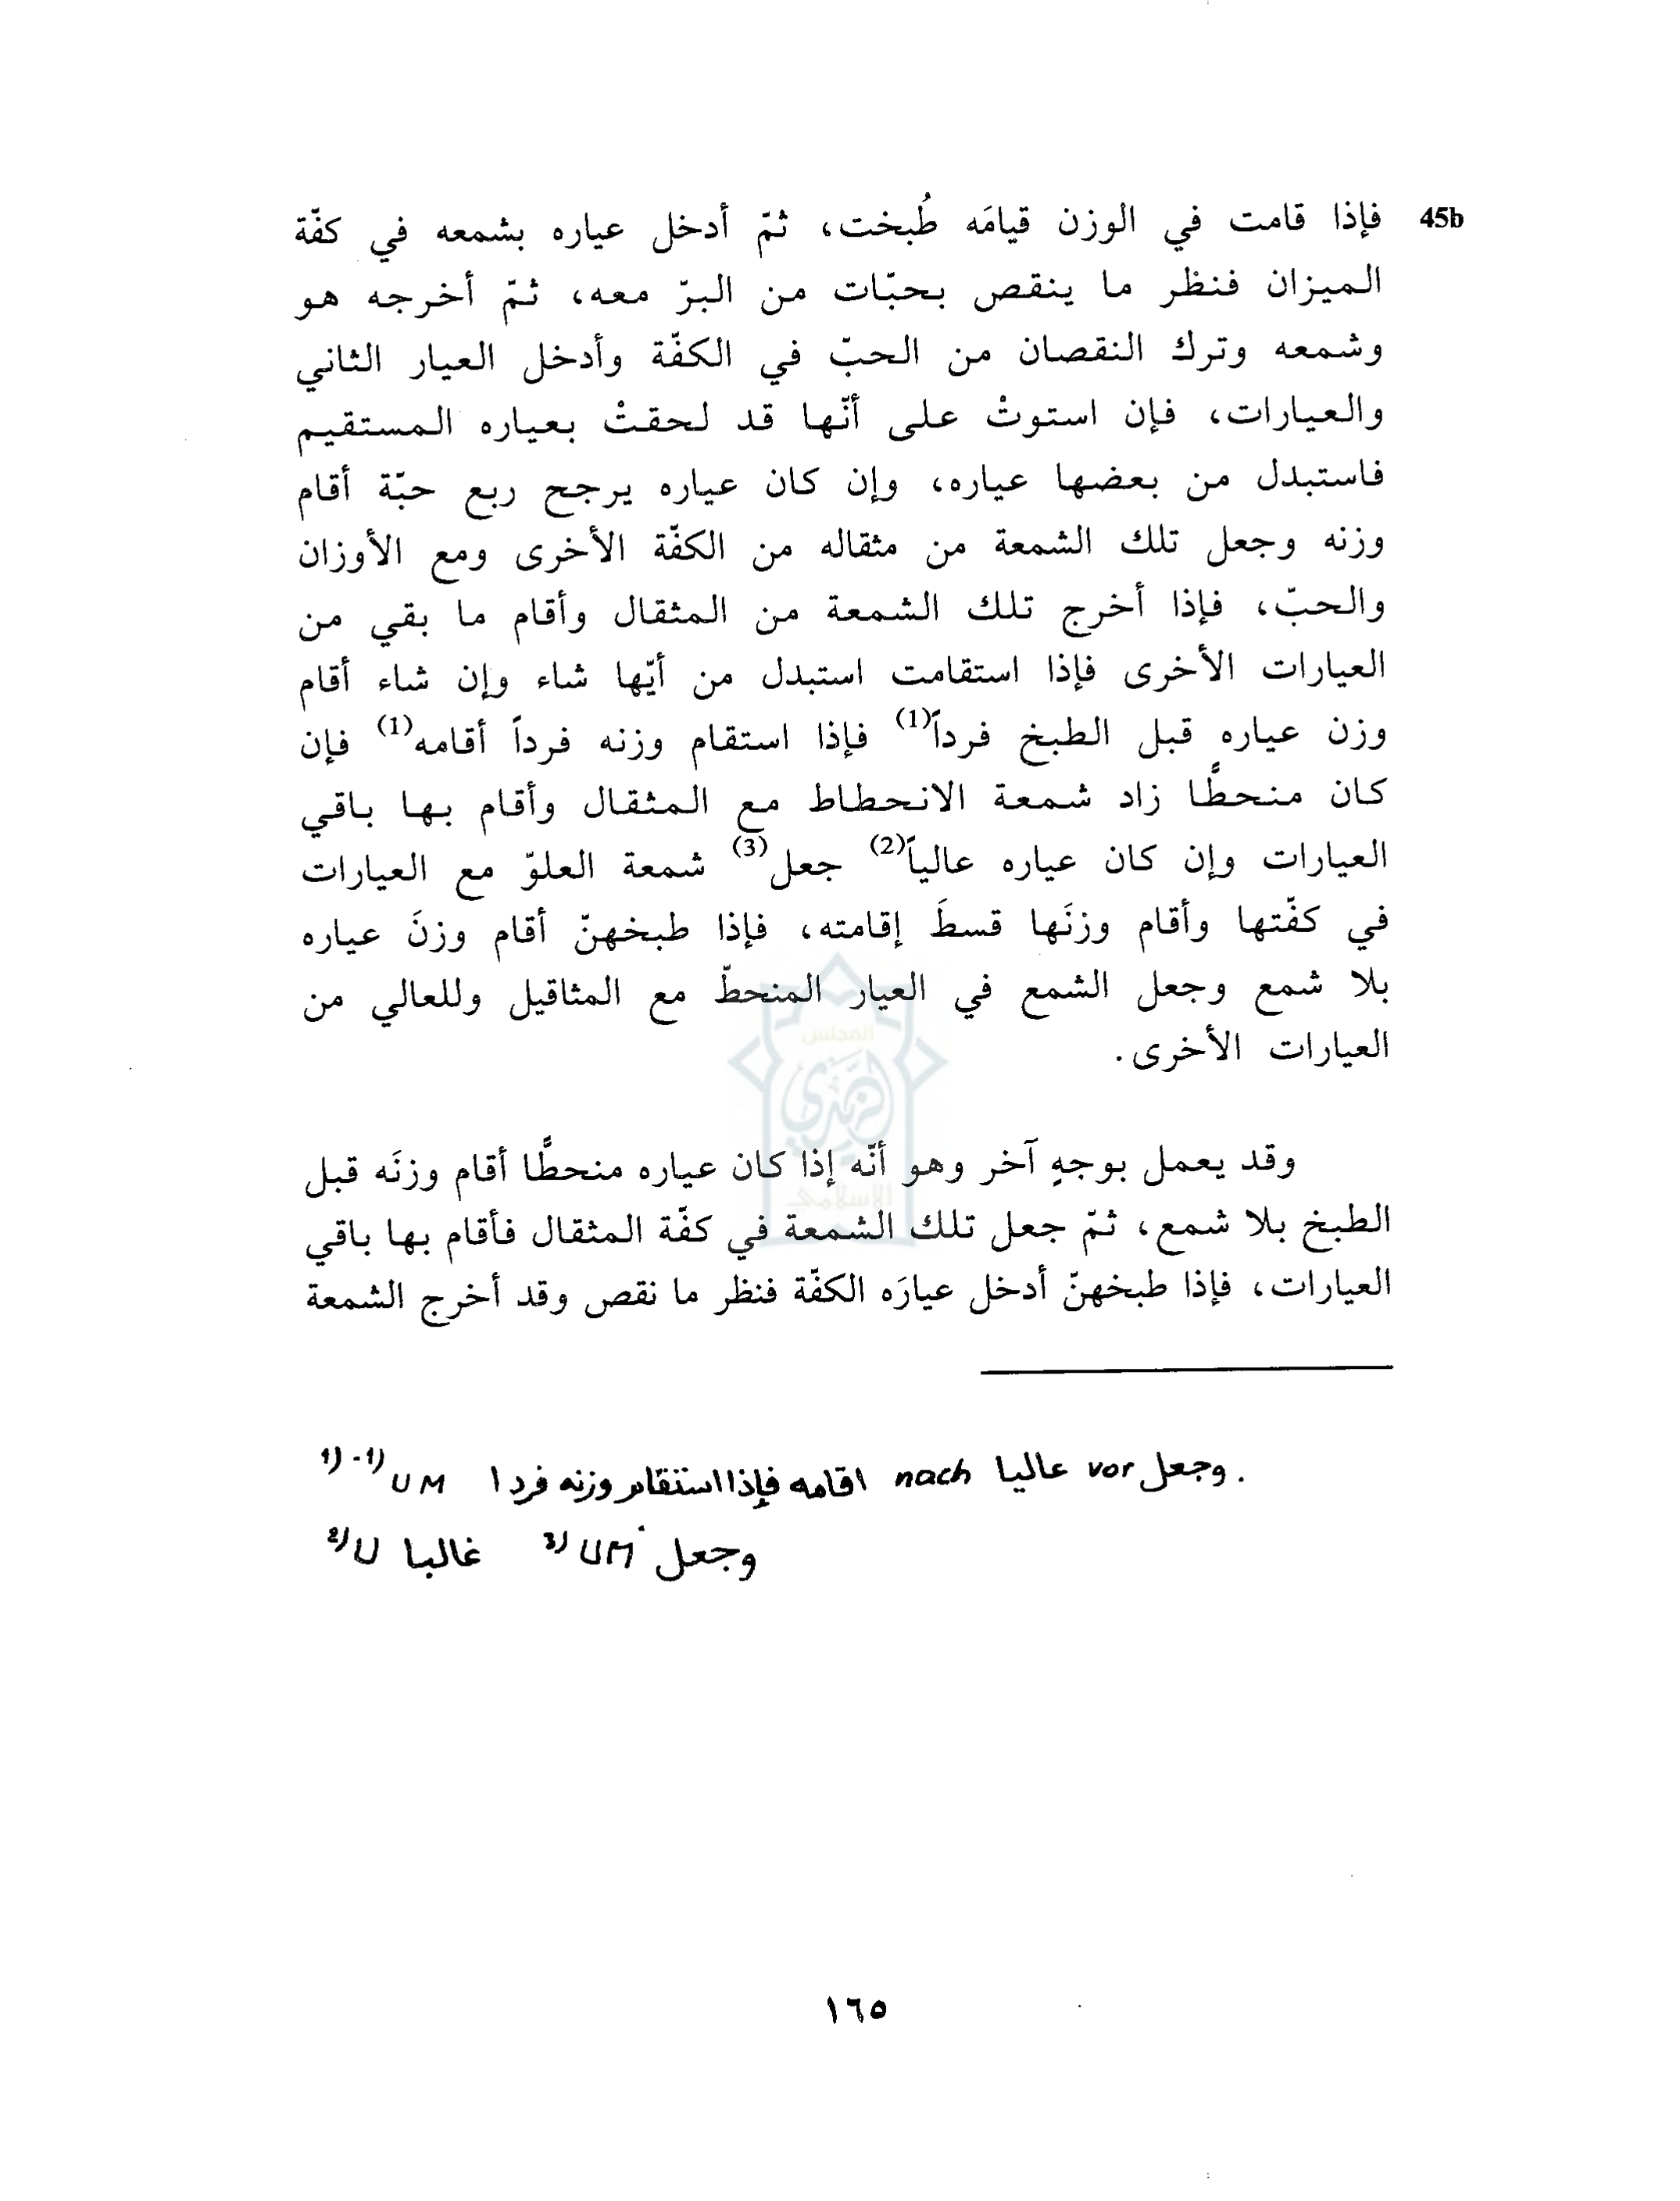 45b فإذا قامت في الوزن قيامَه طُبخت، ثمّ أدخل عياره بشمعه في كفّة
الميزان فنظر ما ينقص بحبّات من البرّ معه، ثمّ أخرجه هو
وشمعه وترك النقصان من الحبّ في الكفّة وأدخل العيار الثاني
والعيارات، فإن استوتْ على أنّها قد لحقتْ بعياره المستقيم
فاستبدل من بعضها عياره، وإن كان عياره يرجح ربع حبّة أقام
وزنه وجعل تلك الشمعة من مثقاله من الكفّة الأخرى ومع الأوزان
والحبّ، فإذا أخرج تلك الشمعة من المثقال وأقام ما بقي من
العيارات الأخرى فإذا استقامت استبدل من أيّها شاء وإن شاء أقام
وزن عياره قبل الطبخ فرداً(1) فإذا استقام وزنه فرداً أقامه(1) فإن
كان منحطًّا زاد شمعة الانحطاط مع المثقال وأقام بها باقي
العيارات وإن كان عياره عالياً(2) جعل(3) شمعة العلوّ مع العيارات
في كفّتها وأقام وزنَها قسطَ إقامته، فإذا طبخهنّ أقام وزنَ عياره
بلا شمع وجعل الشمع في العيار المنحطّ مع المثاقيل وللعالي من
العيارات الأخرى.
وقد يعمل بوجهٍ آخر وهو أنّه إذا كان عياره منحطًّا أقام وزنَه قبل
الطبخ بلا شمع، ثمّ جعل تلك الشمعة في كفّة المثقال فأقام بها باقي
العيارات، فإذا طبخهنّ أدخل عيارَه الكفّة فنظر ما نقص وقد أخرج الشمعة
1)-1) UM اقامه فإذا استقام وزنه فردا nach عاليا vor وجعل.
2) U غالبا 3) UM وجعل
١٦٥
المجلس
الإسلامي